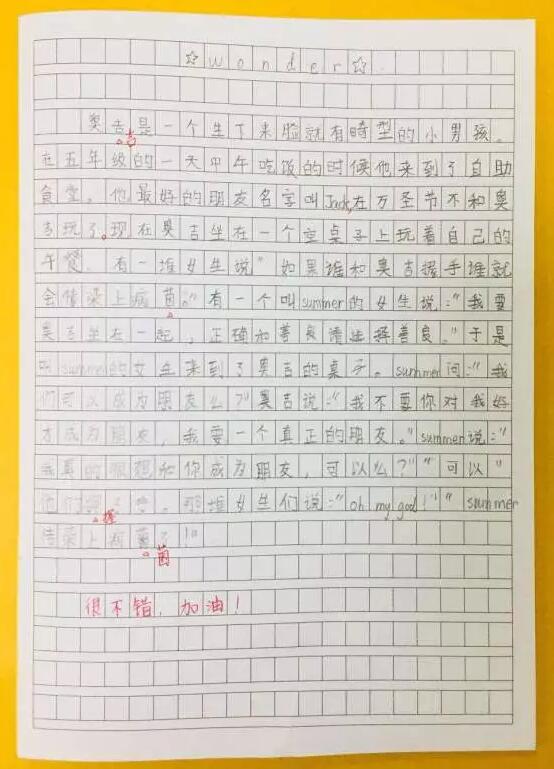 ☆wonder☆
奥吉是一个生下来脸就有畸型的小男孩。
吉
在五年级的一天中午吃饭的时候他来到了自助
食堂。他最好的朋友名字叫Jack,在万圣节不和奥
吉玩了。现在奥吉坐在一个空桌子上玩着自己的
午餐。有一堆女生说"如果谁和奥吉握手谁就
会传染上病菌。"有一个叫summer的女生说:"我要
奥吉坐在一起,正确和善良请选择善良。"于是
叫summer的女生来到了奥吉的桌子。summer问:"我
们可以成为朋友么?"奥吉说:"我不要你对我好
才成为朋友,我要一个真正的朋友。"summer说:"
我真的很想和你成为朋友,可以么?""可以"
他们握手。那堆女生们说:"oh my god!""summer
握
传染上病菌了!"
菌
很不错,加油!